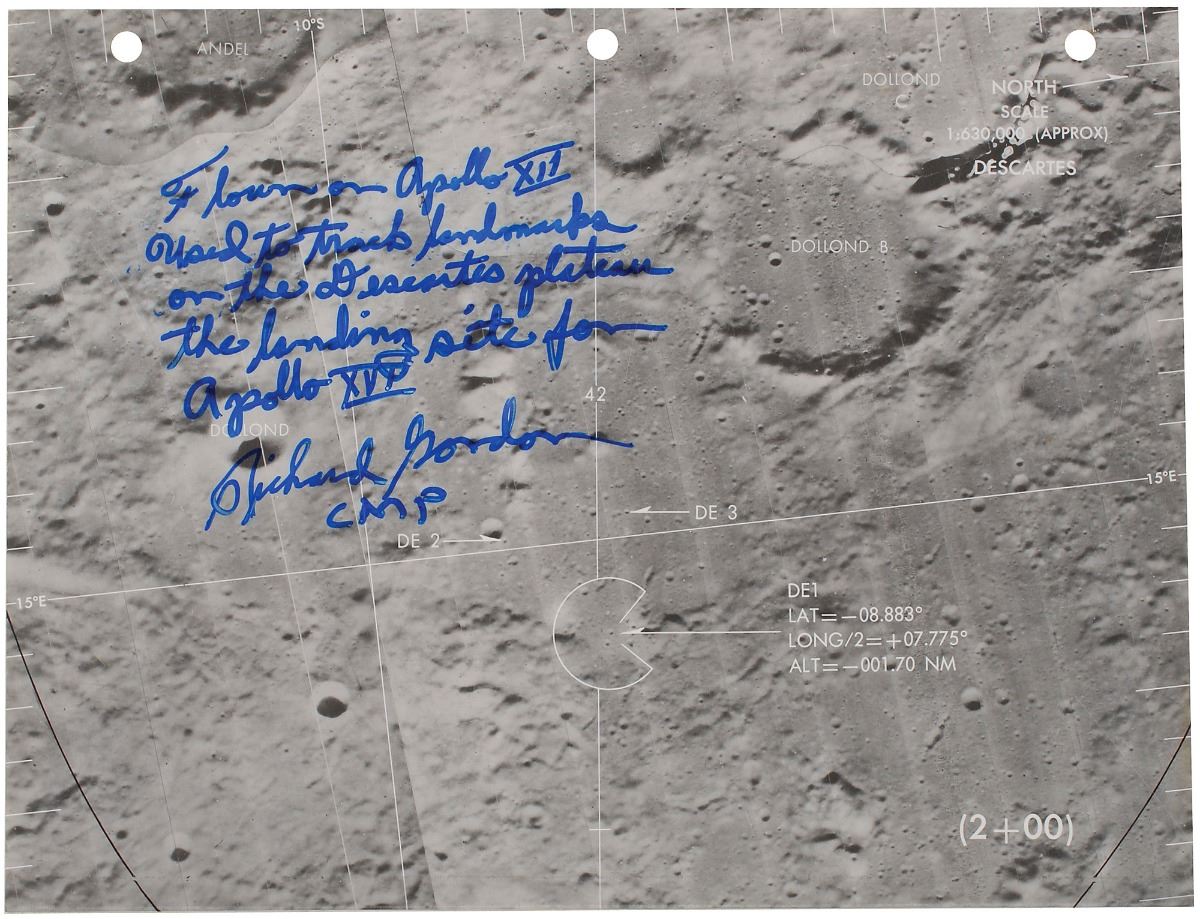 10°S
ANDEL
DOLLOND
C
NORTH
SCALE
1:630,000 (APPROX)
DESCARTES
Flown on Apollo XII
Used to track landmarks
on the Descartes plateau
the landing site for
Apollo XVI
DOLLOND B
42
DOLLOND
Richard Gordon
CMP
15°E
DE 3
DE 2
15°E
DE1
LAT=-08.883°
LONG/2=+07.775°
ALT=-001.70 NM
(2+00)